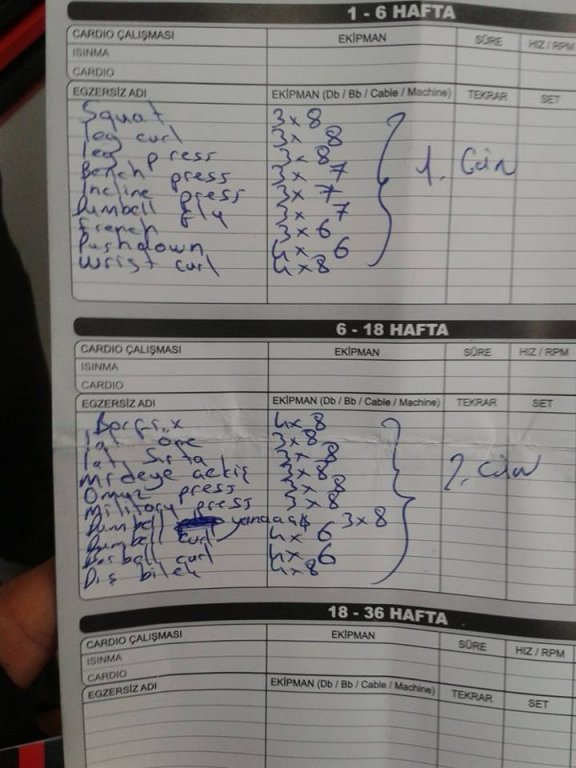 1 - 6 HAFTA
CARDIO ÇALIŞMASI EKİPMAN SÜRE HIZ / RPM
ISINMA
CARDIO
EGZERSİZ ADI EKİPMAN (Db / Bb / Cable / Machine) TEKRAR SET
Squat 3x8
leg curl 3x8
leg press 3x8
Bench press 3x7
Incline press 3x7
Dumbell fly 3x7
French 3x6
Pushdown 4x6
Wrist curl 4x8
1. Gün
6 - 18 HAFTA
CARDIO ÇALIŞMASI EKİPMAN SÜRE HIZ / RPM
ISINMA
CARDIO
EGZERSİZ ADI EKİPMAN (Db / Bb / Cable / Machine) TEKRAR SET
Barfix 4x8
lat öne 3x8
lat sırta 3x8
Mideye çekiş 3x8
Omuz press 3x8
Military press 3x8
Dumbell 3x8
Dumbell curl 4x6
Barbell curl 4x6
Dış bilek 4x8
2. Gün
18 - 36 HAFTA
CARDIO ÇALIŞMASI EKİPMAN SÜRE HIZ / RPM
ISINMA
CARDIO
EGZERSİZ ADI EKİPMAN (Db / Bb / Cable / Machine) TEKRAR SET